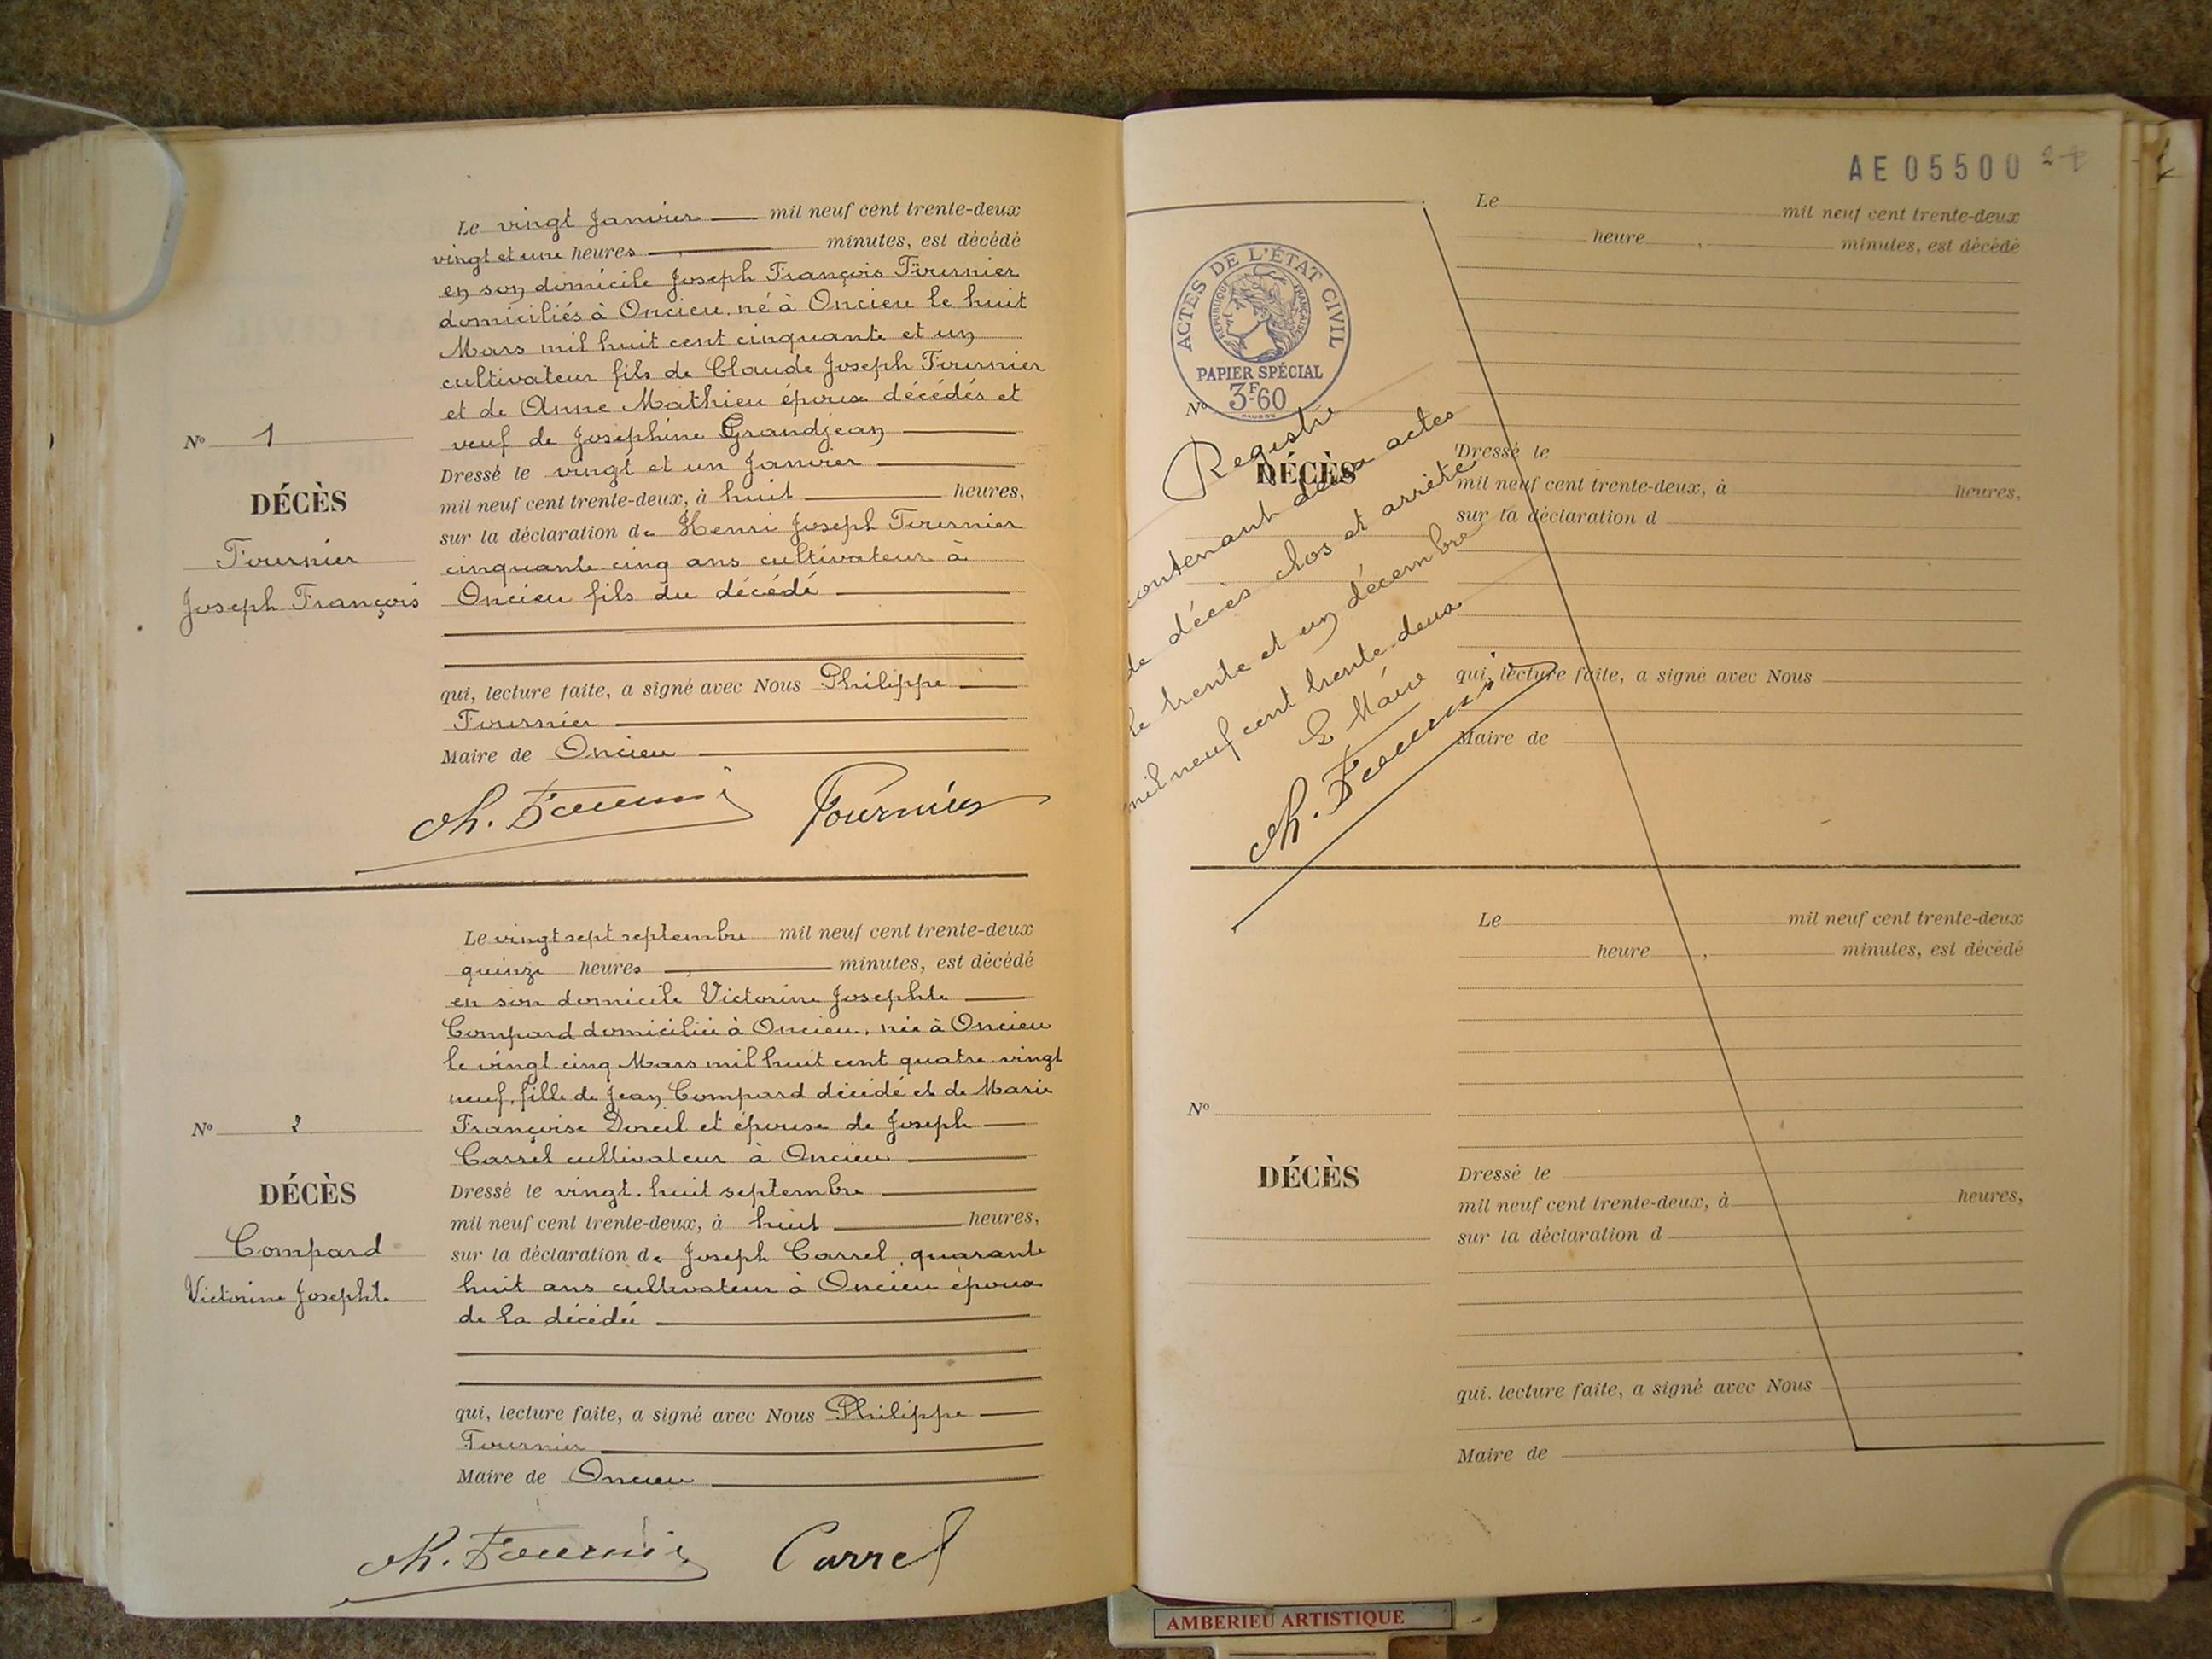 Le vingt Janvier mil neuf cent trente-deux
vingt et une heures , minutes, est décédé
en son domicile Joseph François Fournier
domiciliés à Oncieu, né à Oncieu le huit
Mars mil huit cent cinquante et un
cultivateur fils de Claude Joseph Fournier
et de Anne Mathieu époux décédés et
veuf de Joséphine Grandjean
Dressé le vingt et un Janvier
mil neuf cent trente-deux, à huit heures,
sur la déclaration de Henri Joseph Fournier
cinquante cinq ans cultivateur à
Oncieu fils du décédé
qui, lecture faite, a signé avec Nous Philippe
Fournier
Maire de Oncieu
Ph. Fournier Fournier
N° 1
DÉCÈS
Fournier
Joseph François
Le vingt sept septembre mil neuf cent trente-deux
quinze heures , minutes, est décédé
en son domicile Victorine Josephte
Compard domiciliée à Oncieu, née à Oncieu
le vingt-cinq Mars mil huit cent quatre-vingt
neuf, fille de Jean Compard décédé et de Marie
Françoise Doreil et épouse de Joseph
Carrel cultivateur à Oncieu
Dressé le vingt-huit septembre
mil neuf cent trente-deux, à huit heures,
sur la déclaration de Joseph Carrel, quarante
huit ans cultivateur à Oncieu époux
de la décédée
qui, lecture faite, a signé avec Nous Philippe
Fournier
Maire de Oncieu
Ph. Fournier Carrel
N° 2
DÉCÈS
Compard
Victorine Josephte
AE 05500
ACTES DE L'ÉTAT CIVIL
RÉPUBLIQUE FRANÇAISE
PAPIER SPÉCIAL
3F.60
Le mil neuf cent trente-deux
heure , minutes, est décédé
N°
DÉCÈS
Dressé le
mil neuf cent trente-deux, à heures,
sur la déclaration d
qui, lecture faite, a signé avec Nous
Maire de
Registre
contenant deux actes
de décès clos et arrêté
le trente et un décembre
mil neuf cent trente-deux
Le Maire
Ph. Fournier
Le mil neuf cent trente-deux
heure , minutes, est décédé
N°
DÉCÈS
Dressé le
mil neuf cent trente-deux, à heures,
sur la déclaration d
qui. lecture faite, a signé avec Nous
Maire de
AMBERIEU ARTISTIQUE